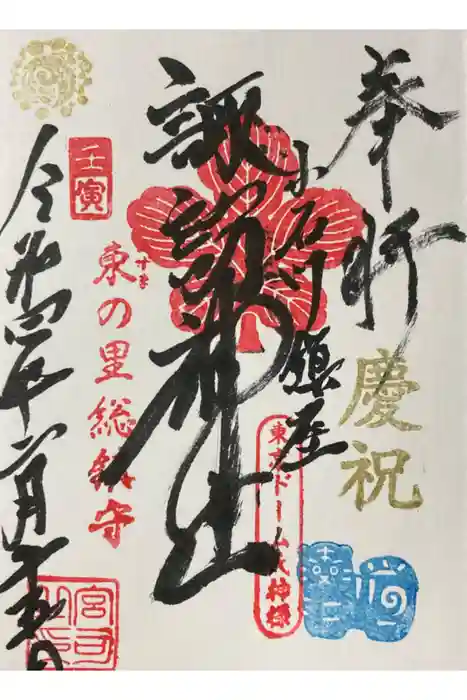 奉拝
慶祝
小石川鎮座
東京ドーム氏神様
諏訪神社
壬寅
東の里総鎮守
令和四年
宮司之印